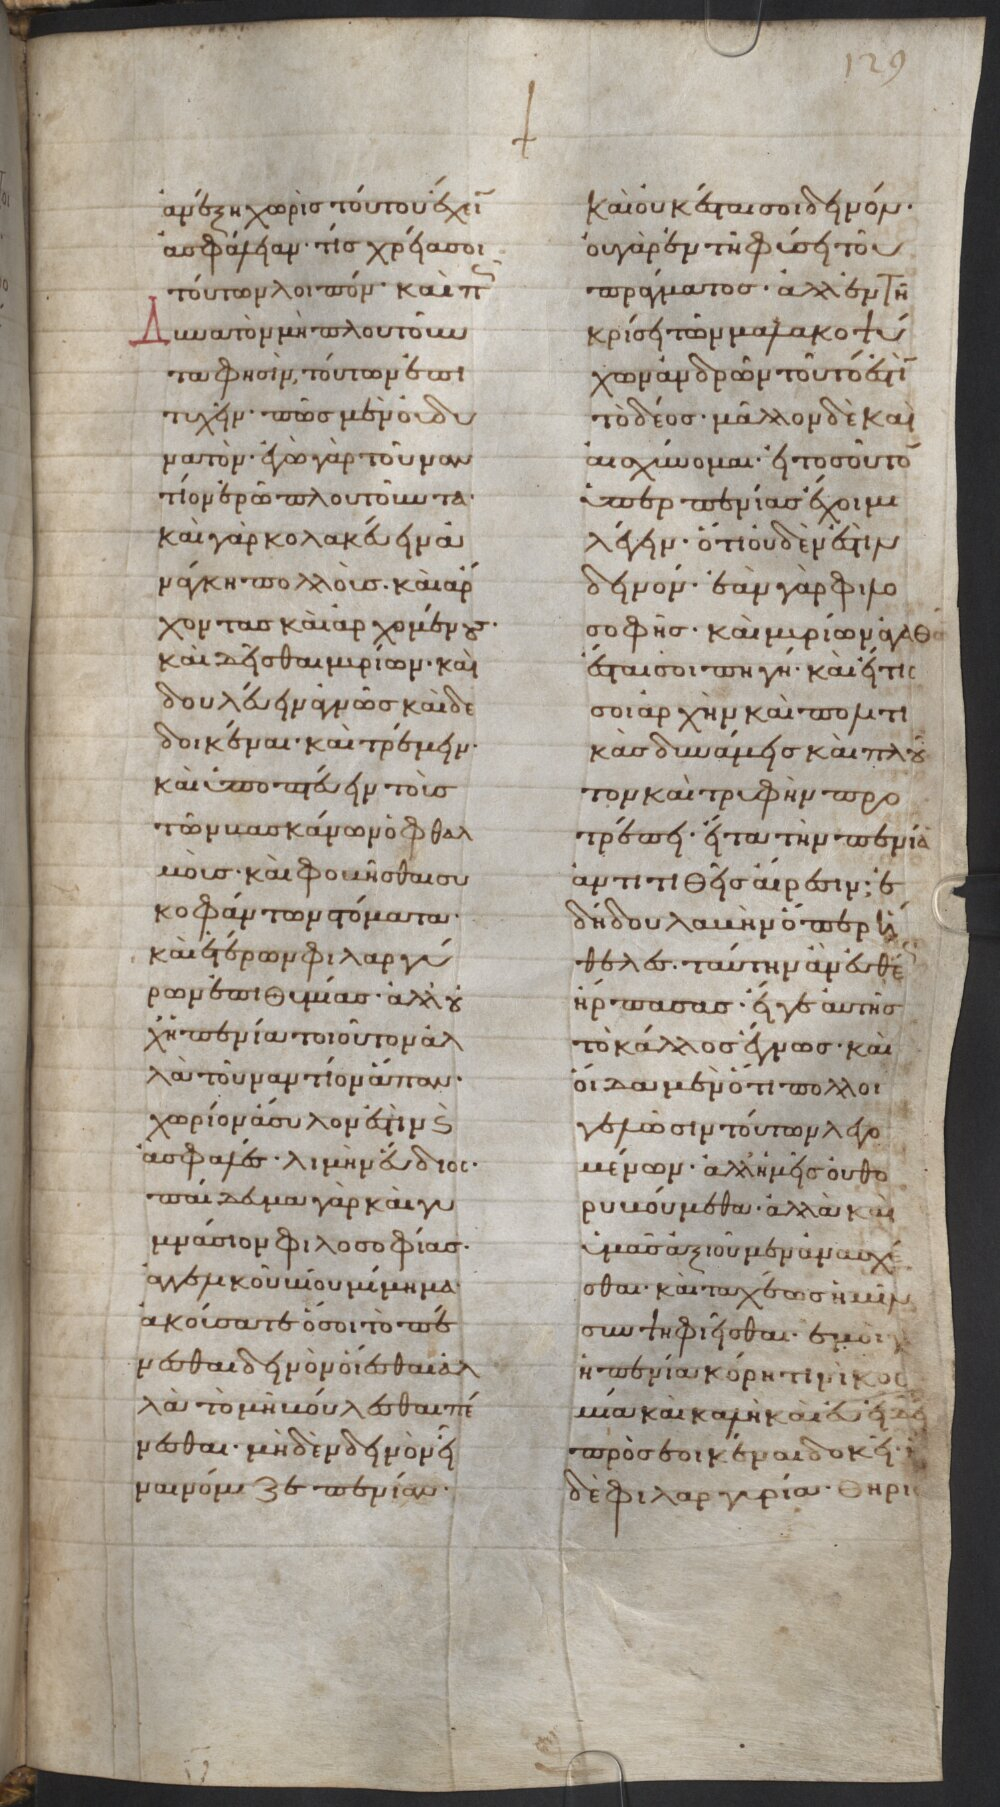 129
ἀνέξη χωρὶσ τούτου ἔχειν
ἀσφάλειαν· τίσ χρεία σοι
τούτων λοιπόν· καὶ πῶς
Δυνατὸν μὴ πλουτοῦν
τα φησὶν, τούτων ἐπι
τυχεῖν· πῶσ μὲν οὐ δυ
νατὸν· ἐγὼ γὰρ τοῦναν
τίον ἐρῶ πλουτοῦντα·
καὶ γὰρ κολακεύειν ἀ
νάγκη πολλοὺσ· καὶ ἄρ
χοντασ καὶ ἀρχομένουσ·
καὶ δεῖσθαι μυρίων· καὶ
δουλεύειν ἀγενῶσ καὶ δε
δοικέναι· καὶ τρέμειν·
καὶ ὑποπτεύειν τοὺσ
τῶν βασκάνων ὀφθαλ
μοὺσ· καὶ φοβεῖσθαι συ
κοφάντων στόματα·
καὶ ἑτέρων φιλαργύ
ρων ἐπιθυμίασ· ἀλλ οὐ
χ ἡ πενία τοιοῦτον ἀλ
λὰ τοῦναντίον ἅπαν·
χωρίον ἄσυλον ἐστὶν καὶ
ἀσφαλεσ· λιμὴν εὔδιοσ·
παίδευμα γὰρ καὶ γυ
μνάσιον φιλοσοφίασ·
ἀγγελικοῦ βίου μίμημα·
ἀκούσατε ὅσοι τὸ πέ
νεσθαι δεινὸν οἴεσθαι ἀλ
λὰ τὸ μὴ βούλεσθαι πέ
νεσθαι· μηδὲν δεινὸν εἶ
ναι νόμιζε πενίαν·
καὶ οὐκ ἔσται σοι δεινόν·
οὐ γὰρ ἐν τῆ φύσει τοῦ
πράγματοσ· ἀλλ ἐν τῆ
κρίσει τῶν μαλακοψύ
χων ἀνδρῶν τοῦτό ἐστὶ
τὸ δέοσ· μᾶλλον δὲ καὶ
αἰσχύνομαι· εἰ τοσοῦτον
ὑπερ πενίασ ἔχοιμι
λέγειν· ὅτι οὐδὲν ἐστὶν
δεινόν· ἐὰν γὰρ φιλο
σοφῆσ· καὶ μυρίων ἀγαθῶν
ἔσται σοι πηγή· καὶ εἴ τισ
σοι ἀρχὴν καὶ πολιτι
κὰσ δυνάμεισ καὶ πλοῦ
τον καὶ τρυφὴν προ
τρέπει· εἶτα τὴν πενίαν
ἀντιτιθεῖσ αἵρεσιν· ἐ
δήδου λαβεῖν ὅπερ
θελεσ· ταύτην ἂν εὐθέωσ
ἥρπασασ· εἴγε αὐτῆσ
τὸ κάλλοσ ἔγνωσ· καὶ
οἶδα μὲν ὅτι πολλοι
γελῶσιν τούτων λεγο
μένων· ἀλλ ἡμεῖσ οὐ θο
ρυβούμεθα· ἀλλὰ καὶ
ὑμᾶσ ἀξιοῦμεν ἀνασχέ
σθαι· καὶ ταχέωσ ἡμῖν
συνψηφιεῖσθαι· ἐμοὶ
ἡ πενία κόρη τινὶ κοσ
μία καὶ καλῆ καὶ εὐειδεῖ
προσεοικέναι δοκεῖ· ἡ
δὲ φιλαργυρία· θηρι